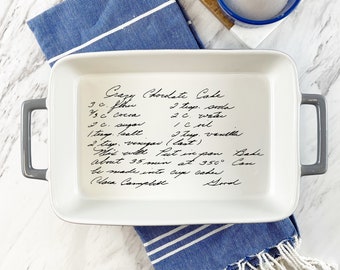 Crazy Chocolate Cake
3 c flour 2 tsp. soda
2/3 c cocoa 2 c water
2 c. sugar 1 c oil
1 tsp. salt 2 tsp. vanilla
2 tsp. vinegar (last)
Mix well Put in pan Bake
about 35 min at 350° Can
be made into cup cakes
Clara Campbell Good